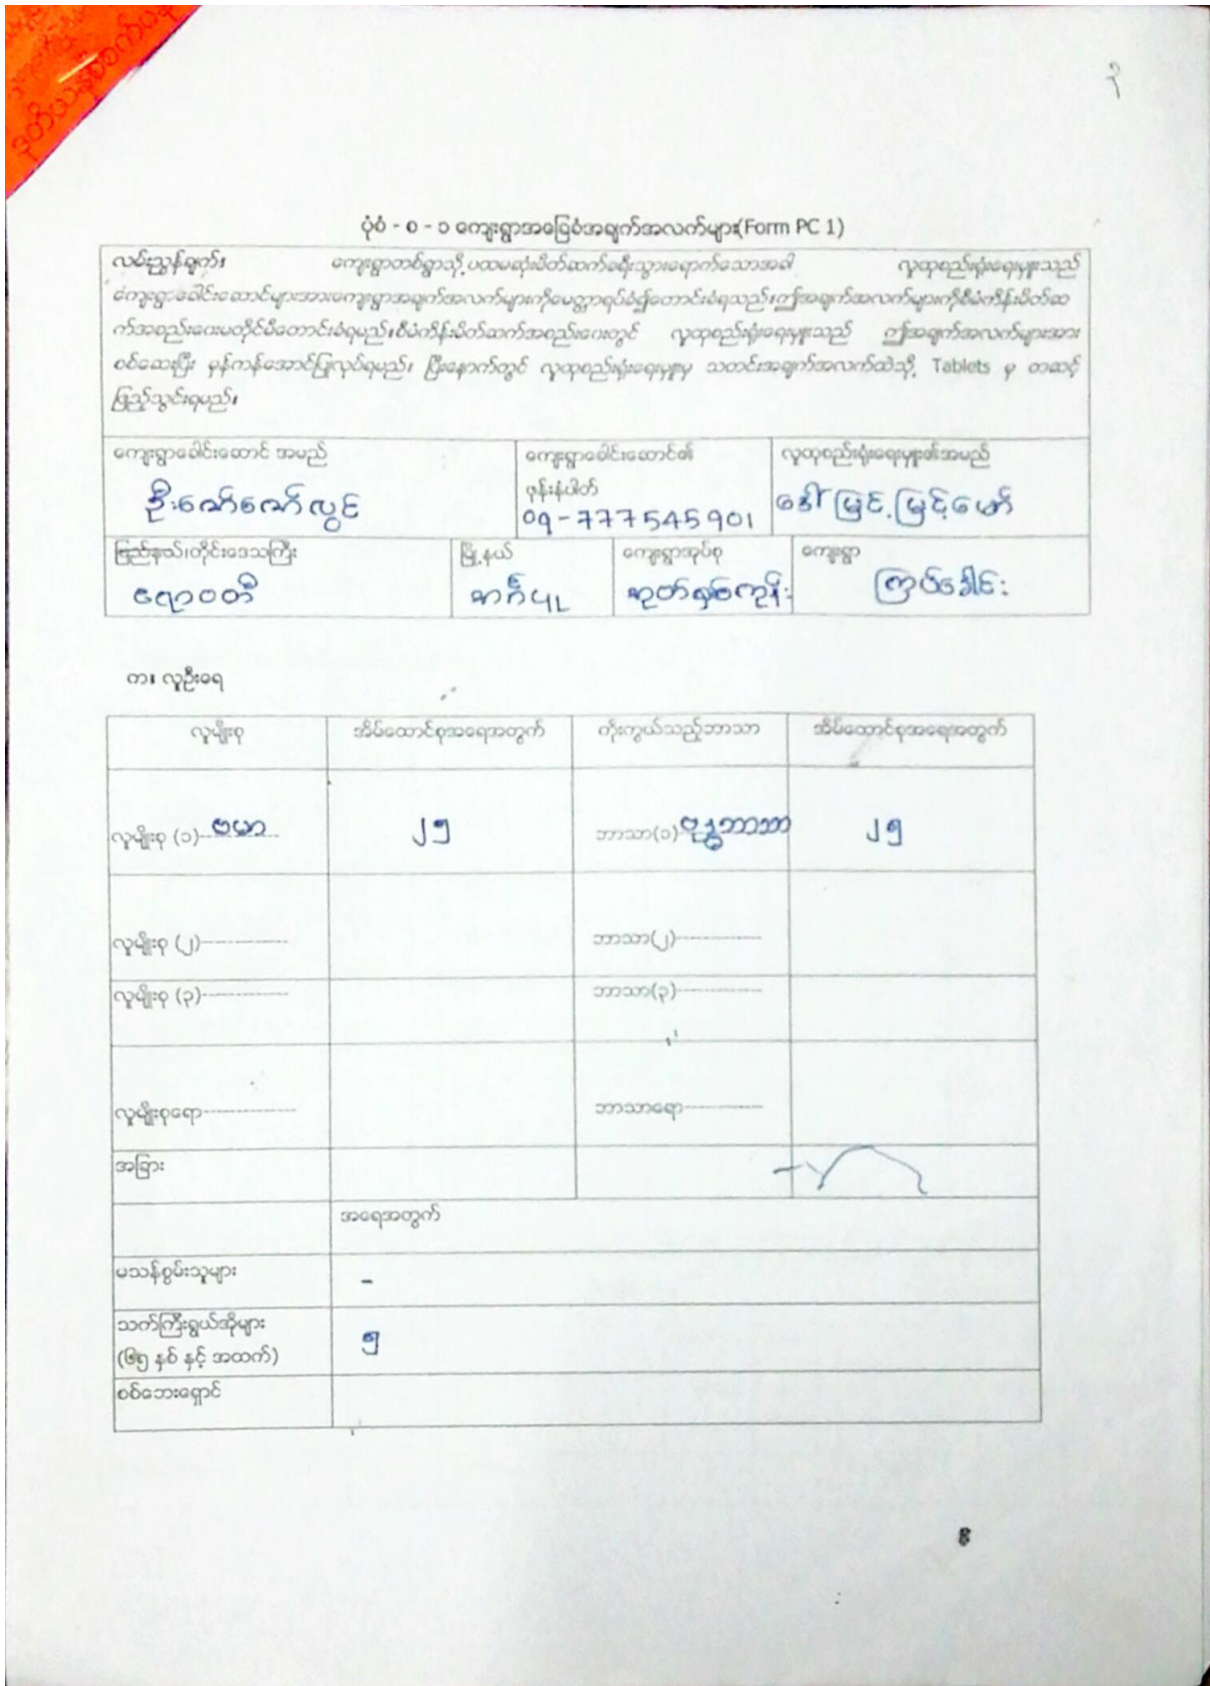 ဒုတိယနှစ်စက်ဝန်
၃
ပုံစံ - စ - ၁ ကျေးရွာအခြေခံအချက်အလက်များ(Form PC 1)
လမ်းညွှန်ချက်။ ကျေးရွာတစ်ရွာသို့ ပထမဆုံးမိတ်ဆက်ခရီးသွားရောက်သောအခါ လူထုစည်းရုံးရေးမှူးသည်
ကျေးရွာခေါင်းဆောင်များအားကျေးရွာအချက်အလက်များကိုမေတ္တာရပ်ခံ၍တောင်းခံရသည်။ဤအချက်အလက်များကိုစီမံကိန်းမိတ်ဆ
က်အစည်းဝေးမတိုင်မီတောင်းခံရမည်။စီမံကိန်းမိတ်ဆက်အစည်းဝေးတွင် လူထုစည်းရုံးရေးမှူးသည် ဤအချက်အလက်များအား
စစ်ဆေးပြီး မှန်ကန်အောင်ပြုလုပ်ရမည်။ ပြီးနောက်တွင် လူထုစည်းရုံးရေးမှူးမှ သတင်းအချက်အလက်ထဲသို့ Tablets မှ တဆင့်
ဖြည့်သွင်းရမည်။
ကျေးရွာခေါင်းဆောင် အမည် ကျေးရွာခေါင်းဆောင်၏ လူထုစည်းရုံးရေးမှူး၏အမည်
ဖုန်းနံပါတ်
ဦးဇော်ဇော်လွင် 09-777545901 ဒေါ်မြင့်မြင့်မော်
ပြည်နယ်၊တိုင်းဒေသကြီး မြို့နယ် ကျေးရွာအုပ်စု ကျေးရွာ
ဧရာဝတီ အင်္ဂပူ ကြပ်ခေါင်း
က။ လူဦးရေ
လူမျိုးစု အိမ်ထောင်စုအရေအတွက် ကိုးကွယ်သည့်ဘာသာ အိမ်ထောင်စုအရေအတွက်
လူမျိုးစု (၁) ဗမာ ၂၅ ဘာသာ(၁) ဗုဒ္ဓဘာသာ ၂၅
လူမျိုးစု (၂)-------------- ဘာသာ(၂)--------------
လူမျိုးစု (၃)-------------- ဘာသာ(၃)--------------
လူမျိုးစုရော-------------- ဘာသာရော-------------
အခြား
အရေအတွက်
မသန်စွမ်းသူများ -
သက်ကြီးရွယ်အိုများ
(၆၅ နှစ် နှင့် အထက်) ၅
စစ်ဘေးရှောင်